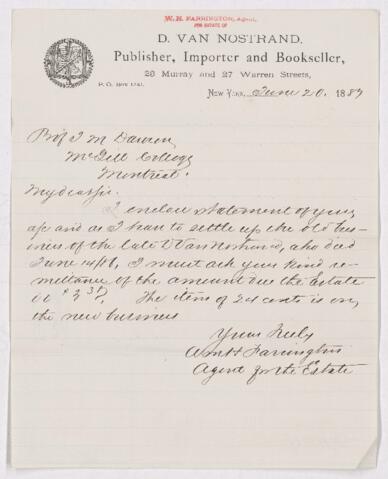 W. H. FARRINGTON, Agent,
FOR ESTATE OF
D. VAN NOSTRAND,
Publisher, Importer and Bookseller,
23 Murray and 27 Warren Streets,
P. O. Box
New York, June 20, 1887
Prof J M Dawson
McGill College
Montreal.
My dear Sir.
I enclose statement of your
a/c and as I have to settle up the old bus-
iness of the late D Van Nostrand, who died
June 14/86, I must ask your kind re-
mittance of the amount due the Estate
$3
The item of 24 cents is on
the new business
Yours truly
Wm H Farrington
Agent for the Estate